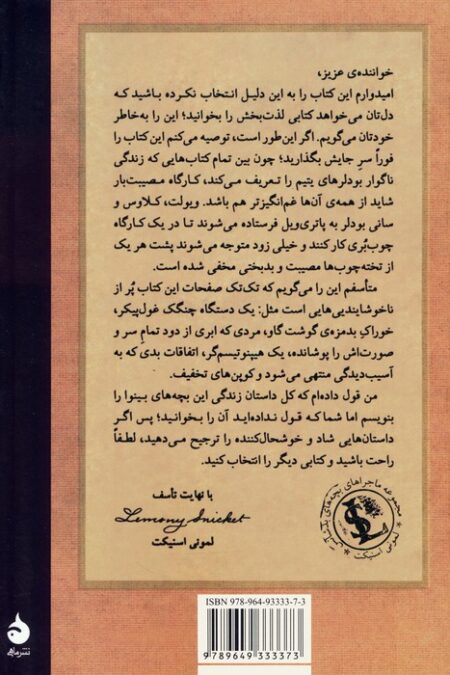 خواننده‌ی عزیز،
امیدوارم این کتاب را به این دلیل انتخاب نکرده باشید که
دل‌تان می‌خواهد کتابی لذت‌بخش را بخوانید؛ این را به‌خاطر
خودتان می‌گویم. اگر این‌طور است، توصیه می‌کنم این کتاب را
فوراً سرِ جایش بگذارید؛ چون بین تمام کتاب‌هایی که زندگی
ناگوار بودلرهای یتیم را تعریف می‌کند، کارگاه مصیبت‌بار
شاید از همه‌ی آن‌ها غم‌انگیزتر هم باشد. ویولت، کلاوس و
سانی بودلر به پالتری‌ویل فرستاده می‌شوند تا در یک کارگاه
چوب‌بُری کار کنند و خیلی زود متوجه می‌شوند پشت هر یک
از تخته‌چوب‌ها مصیبت و بدبختی مخفی شده است.
متأسفم این را می‌گویم که تک‌تک صفحات این کتاب پُر از
ناخوشایندیی‌هایی است مثل: یک دستگاه چنگک غول‌پیکر،
خوراکِ بدمزه‌ی گوشت گاو، مردی که ابری از دود تمامِ سر و
صورت‌اش را پوشانده، یک هیپنوتیسم‌گر، اتفاقات بدی که به
آسیب‌دیدگی منتهی می‌شود و کوپن‌های تخفیف.
من قول داده‌ام که کل داستان زندگی این بچه‌های بینوا را
بنویسم اما شما که قول نداده‌اید آن را بخوانید؛ پس اگر
داستان‌هایی شاد و خوشحال‌کننده را ترجیح می‌دهید، لطفاً
راحت باشید و کتابی دیگر را انتخاب کنید.
با نهایت تأسف
Lemony Snicket
لمونی اسنیکت
مجموعه ماجراهای بچه‌های بدشانس
لمونی اسنیکت
ISBN 978-964-93333-7-3
9789649333373
نشرماهی